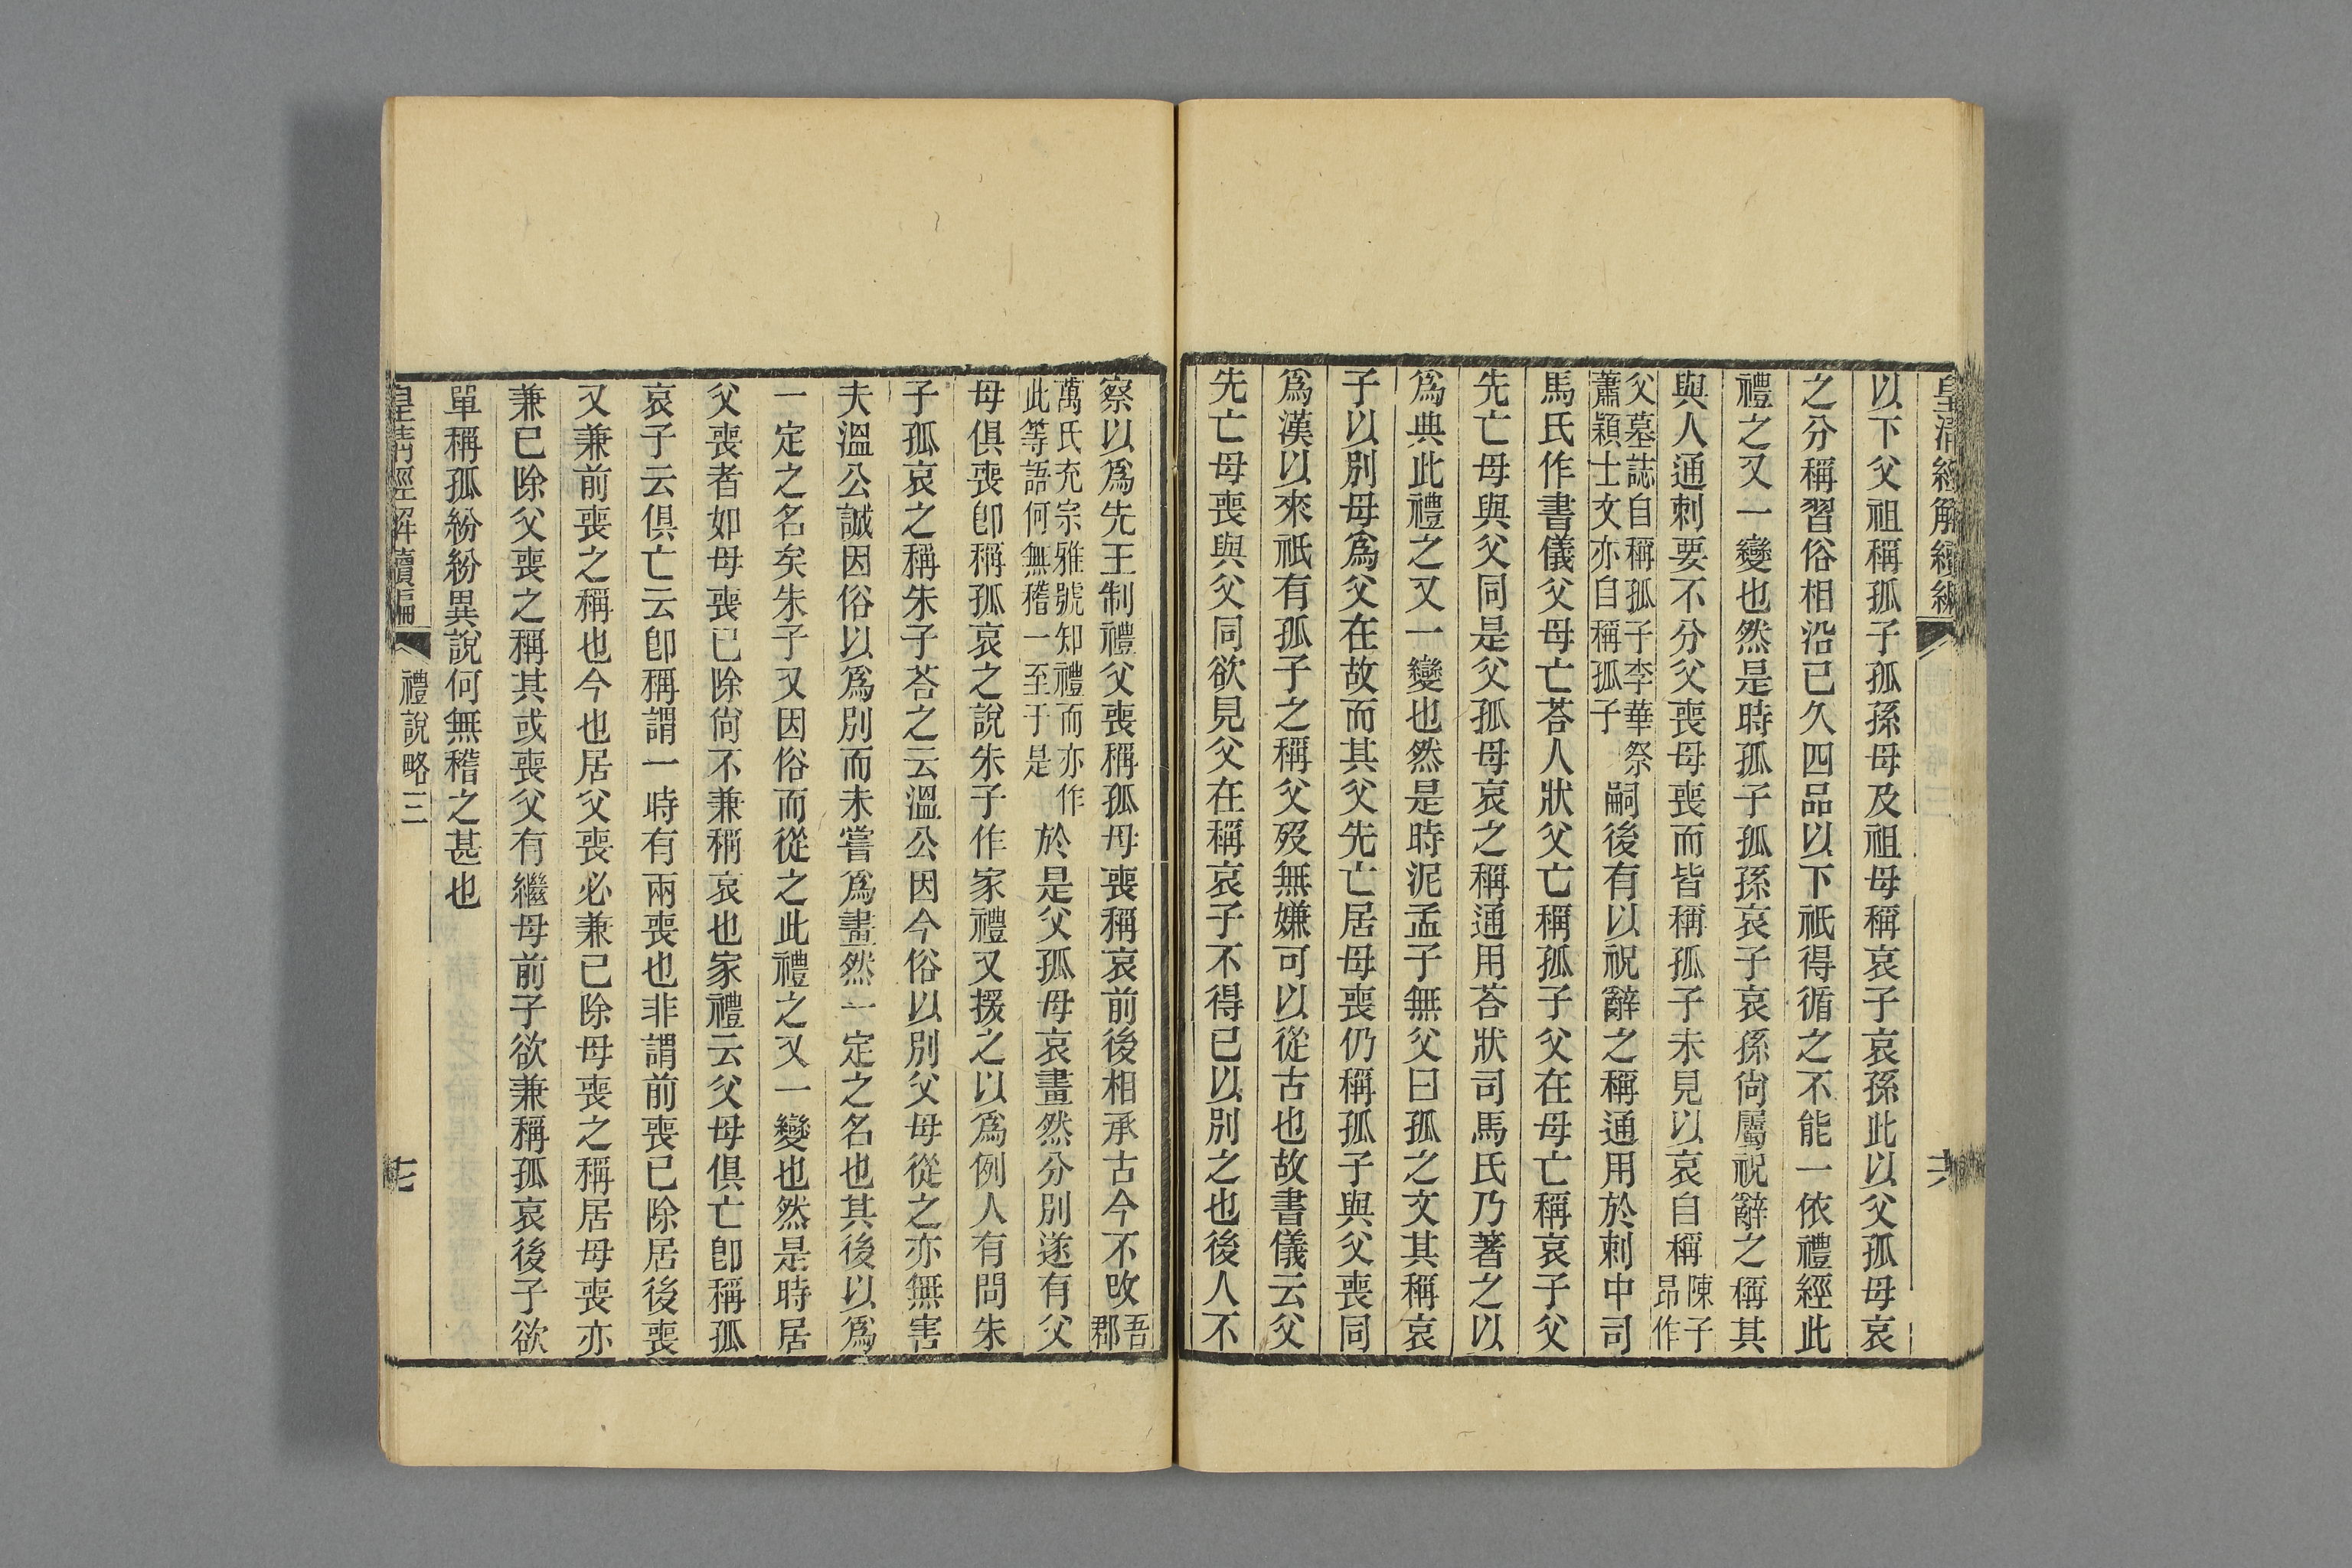 皇清經解續編
六
以下父祖稱孤子孤孫母及祖母稱哀子哀孫此以父孤母哀
之分稱習俗相沿已久四品以下祇得循之不能一依禮經此
禮之又一變也然是時孤子孤孫哀子哀孫尙屬祝辭之稱其
與人通刺要不分父喪母喪而皆稱孤子未見以哀自稱陳子昂作
父墓誌自稱孤子李華祭蕭穎士文亦自稱孤子嗣後有以祝辭之稱通用於刺中司
馬氏作書儀父母亡荅人狀父亡稱孤子父在母亡稱哀子父
先亡母與父同是父孤母哀之稱通用荅狀司馬氏乃著之以
爲典此禮之又一變也然是時泥孟子無父曰孤之文其稱哀
子以別母爲父在故而其父先亡居母喪仍稱孤子與父喪同
爲漢以來祇有孤子之稱父歿無嫌可以從古也故書儀云父
先亡母喪與父同欲見父在稱哀子不得已以別之也後人不
察以爲先王制禮父喪稱孤母喪稱哀前後相承古今不改吾郡
萬氏充宗雅號知禮而亦作此等語何無稽一至于是於是父孤母哀畫然分別遂有父
母俱喪卽稱孤哀之說朱子作家禮又援之以爲例人有問朱
子孤哀之稱朱子荅之云溫公因今俗以別父母從之亦無害
夫溫公誠因俗以爲別而未嘗爲畫然一定之名也其後以爲
一定之名矣朱子又因俗而從之此禮之又一變也然是時居
父喪者如母喪已除尙不兼稱哀也家禮云父母俱亡卽稱孤
哀子云俱亡云卽稱謂一時有兩喪也非謂前喪已除居後喪
又兼前喪之稱也今也居父喪必兼已除母喪之稱居母喪亦
兼已除父喪之稱其或喪父有繼母前子欲兼稱孤哀後子欲
單稱孤紛紛異說何無稽之甚也
皇清經解續編
禮說略三
七